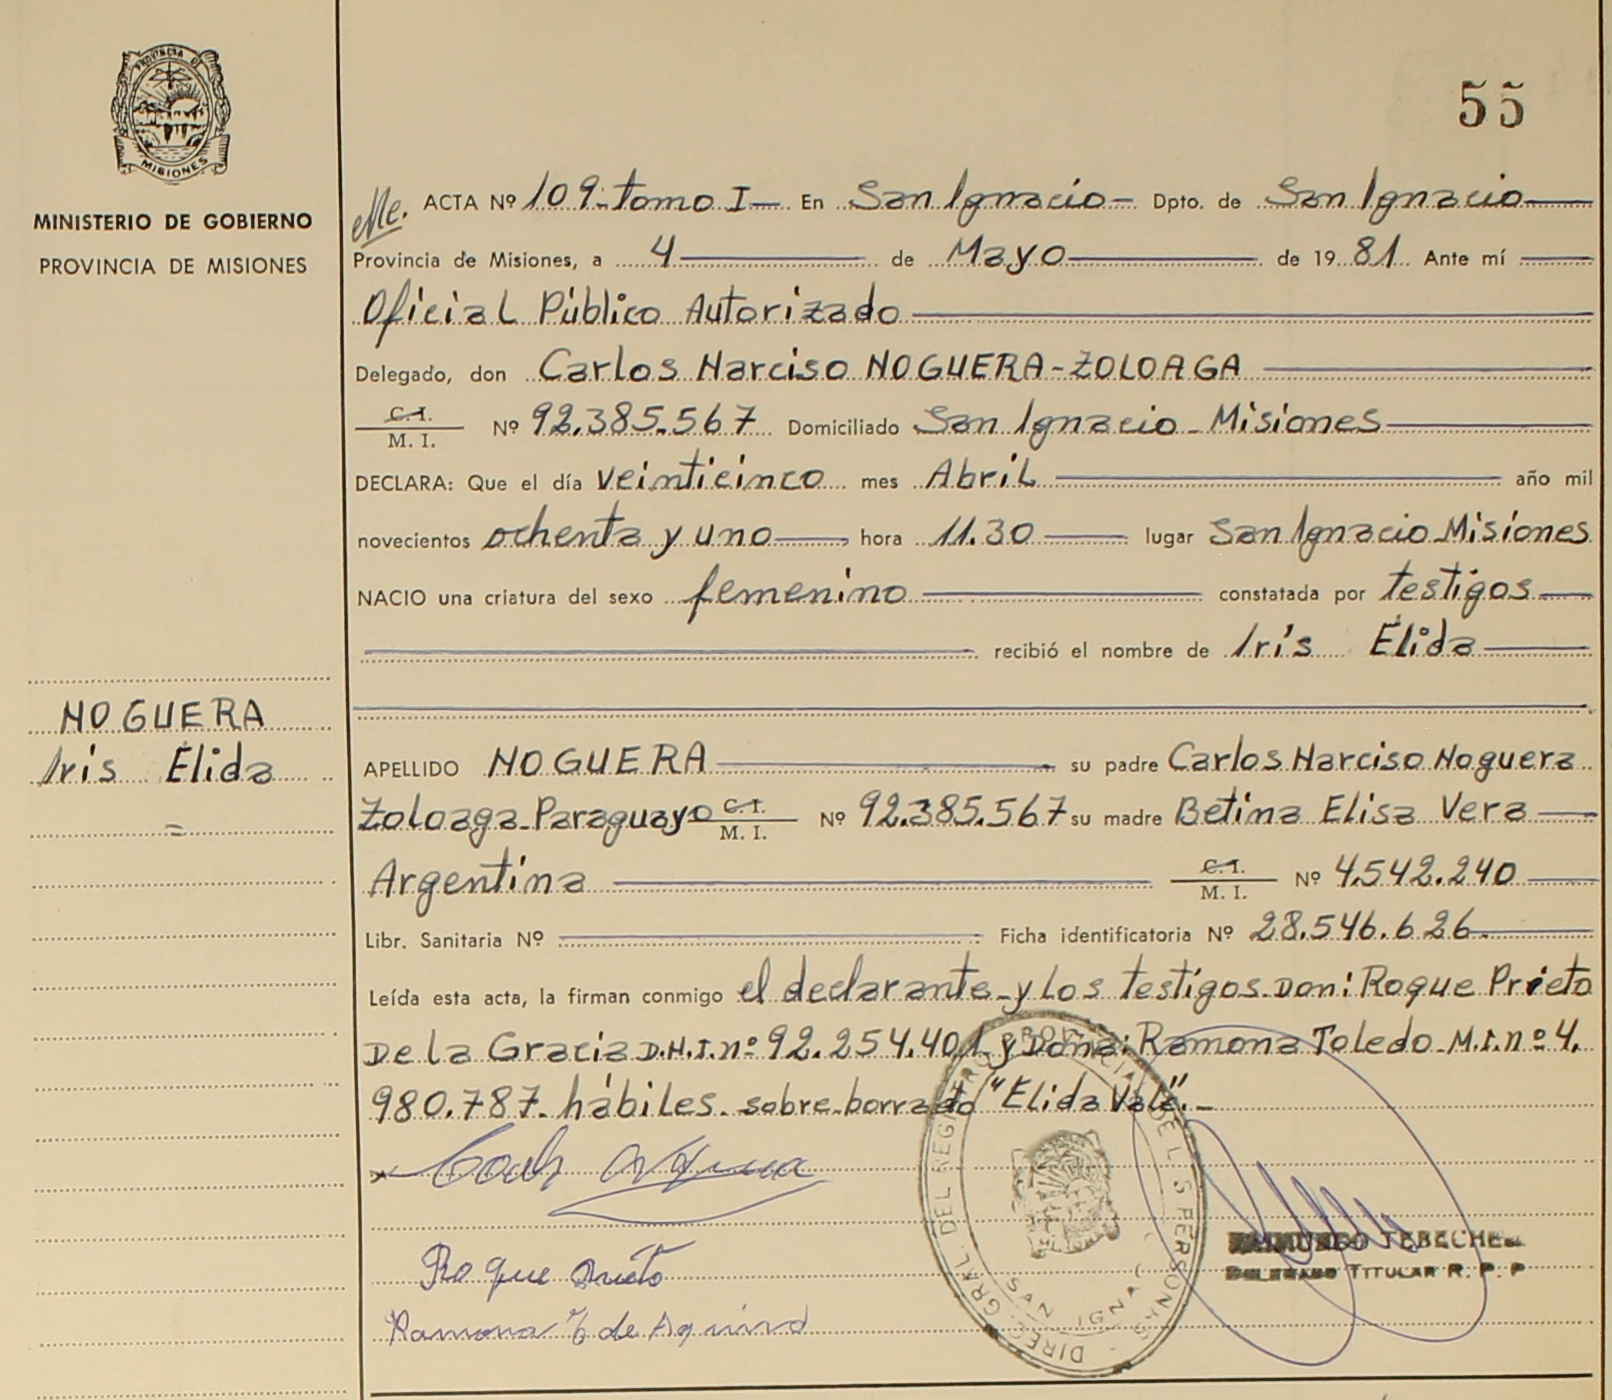 PROVINCIA DE
MISIONES
MINISTERIO DE GOBIERNO
PROVINCIA DE MISIONES
55
ACTA Nº 109-tomo I- En San Ignacio- Dpto. de San Ignacio
Provincia de Misiones, a 4 de Mayo de 1981 Ante mí
Oficial Público Autorizado
Delegado, don Carlos Narciso NOGUERA-ZOLOAGA
C.I.
M. I. Nº 92.385.567 Domiciliado San Ignacio-Misiones
DECLARA: Que el día veinticinco mes Abril año mil
novecientos ochenta y uno hora 11.30 lugar San Ignacio Misiones
NACIO una criatura del sexo femenino constatada por testigos
recibió el nombre de Iris Élida
NOGUERA
Iris Élida
=
APELLIDO NOGUERA su padre Carlos Narciso Noguera
Zoloaga-Paraguayo C.I. M. I. Nº 92.385.567 su madre Betina Elisa Vera
Argentina C.I. M. I. Nº 4.542.240
Libr. Sanitaria Nº Ficha identificatoria Nº 28.546.626.
Leída esta acta, la firman conmigo el declarante-y los testigos-Don: Roque Prieto
De la Gracia D.N.I. nº 92.254.401 y Doña: Ramona Toledo-M.I. nº 4.
980.787-hábiles-sobre-borrado "Elida Vale".-
Roque Prieto
Ramona T de Aquino
RAIMUNDO TEBECHE
DELEGADO TITULAR R. P. P
DIREC. GRAL. DEL REGISTRO PROVINCIAL DE L S PERSONAS
SAN IGNAC